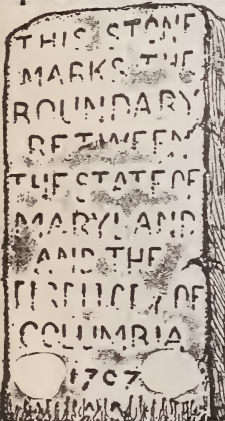 THIS STONE
MARKS THE
BOUNDARY
BETWEEN
THE STATE OF
MARYLAND
AND THE
OF
COLUMBIA
1707